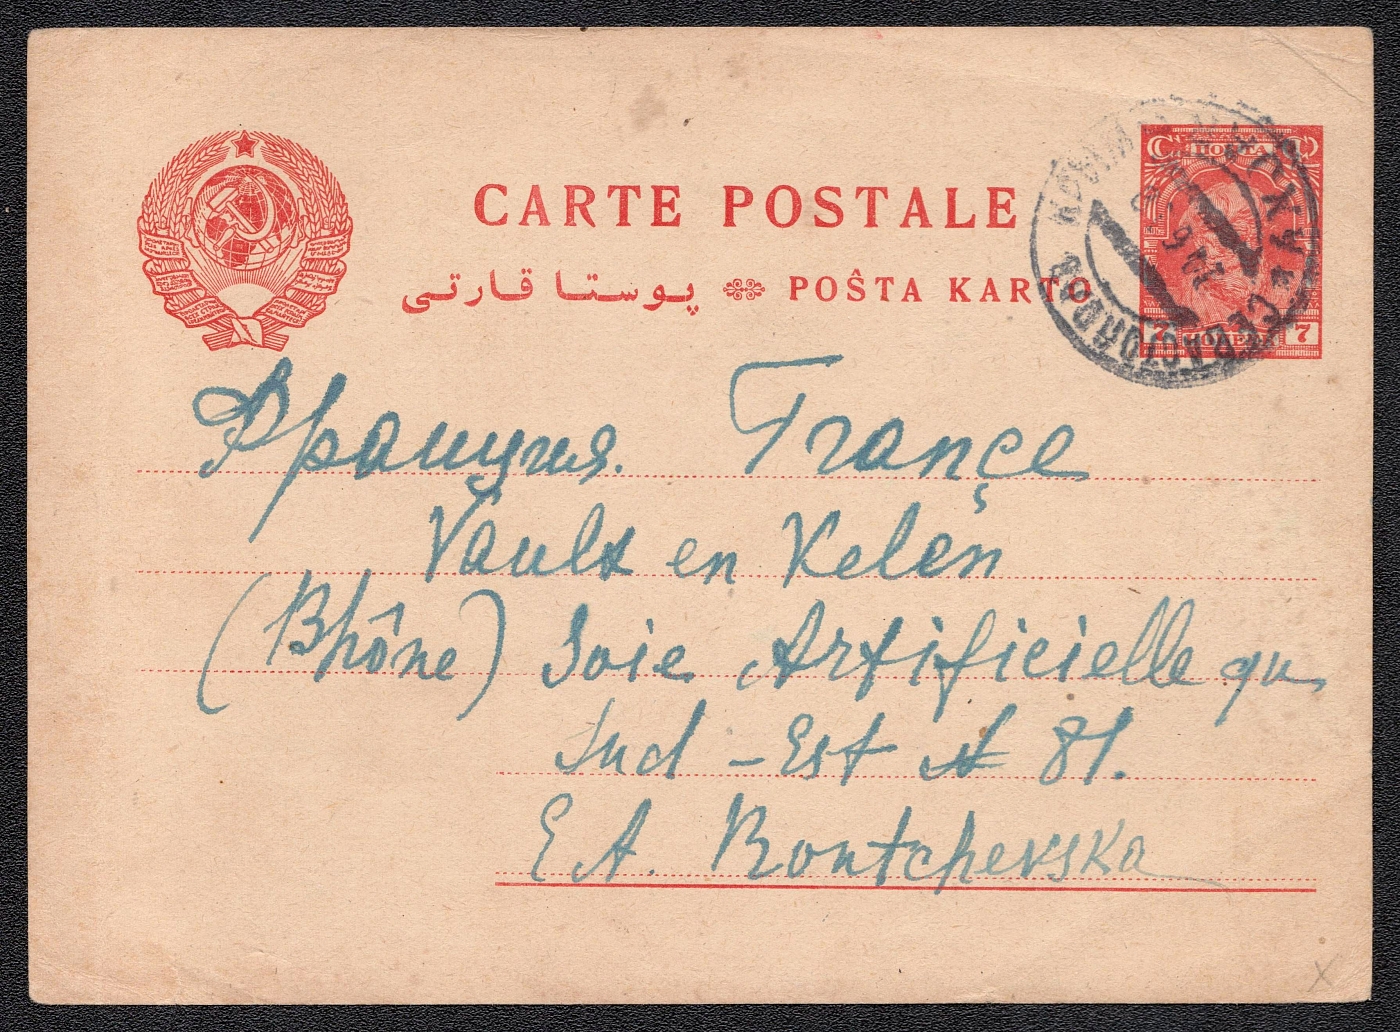 CARTE POSTALE
پوستا قارتی POŜTA KARTO
ПОЧТА
7 7
СЕВАСТОПОЛЬ
Франция. Françe
Vaulx en Velen
(Rhône) Soie Artificielle qu
Sud - Est № 81.
E A. Rontchevska